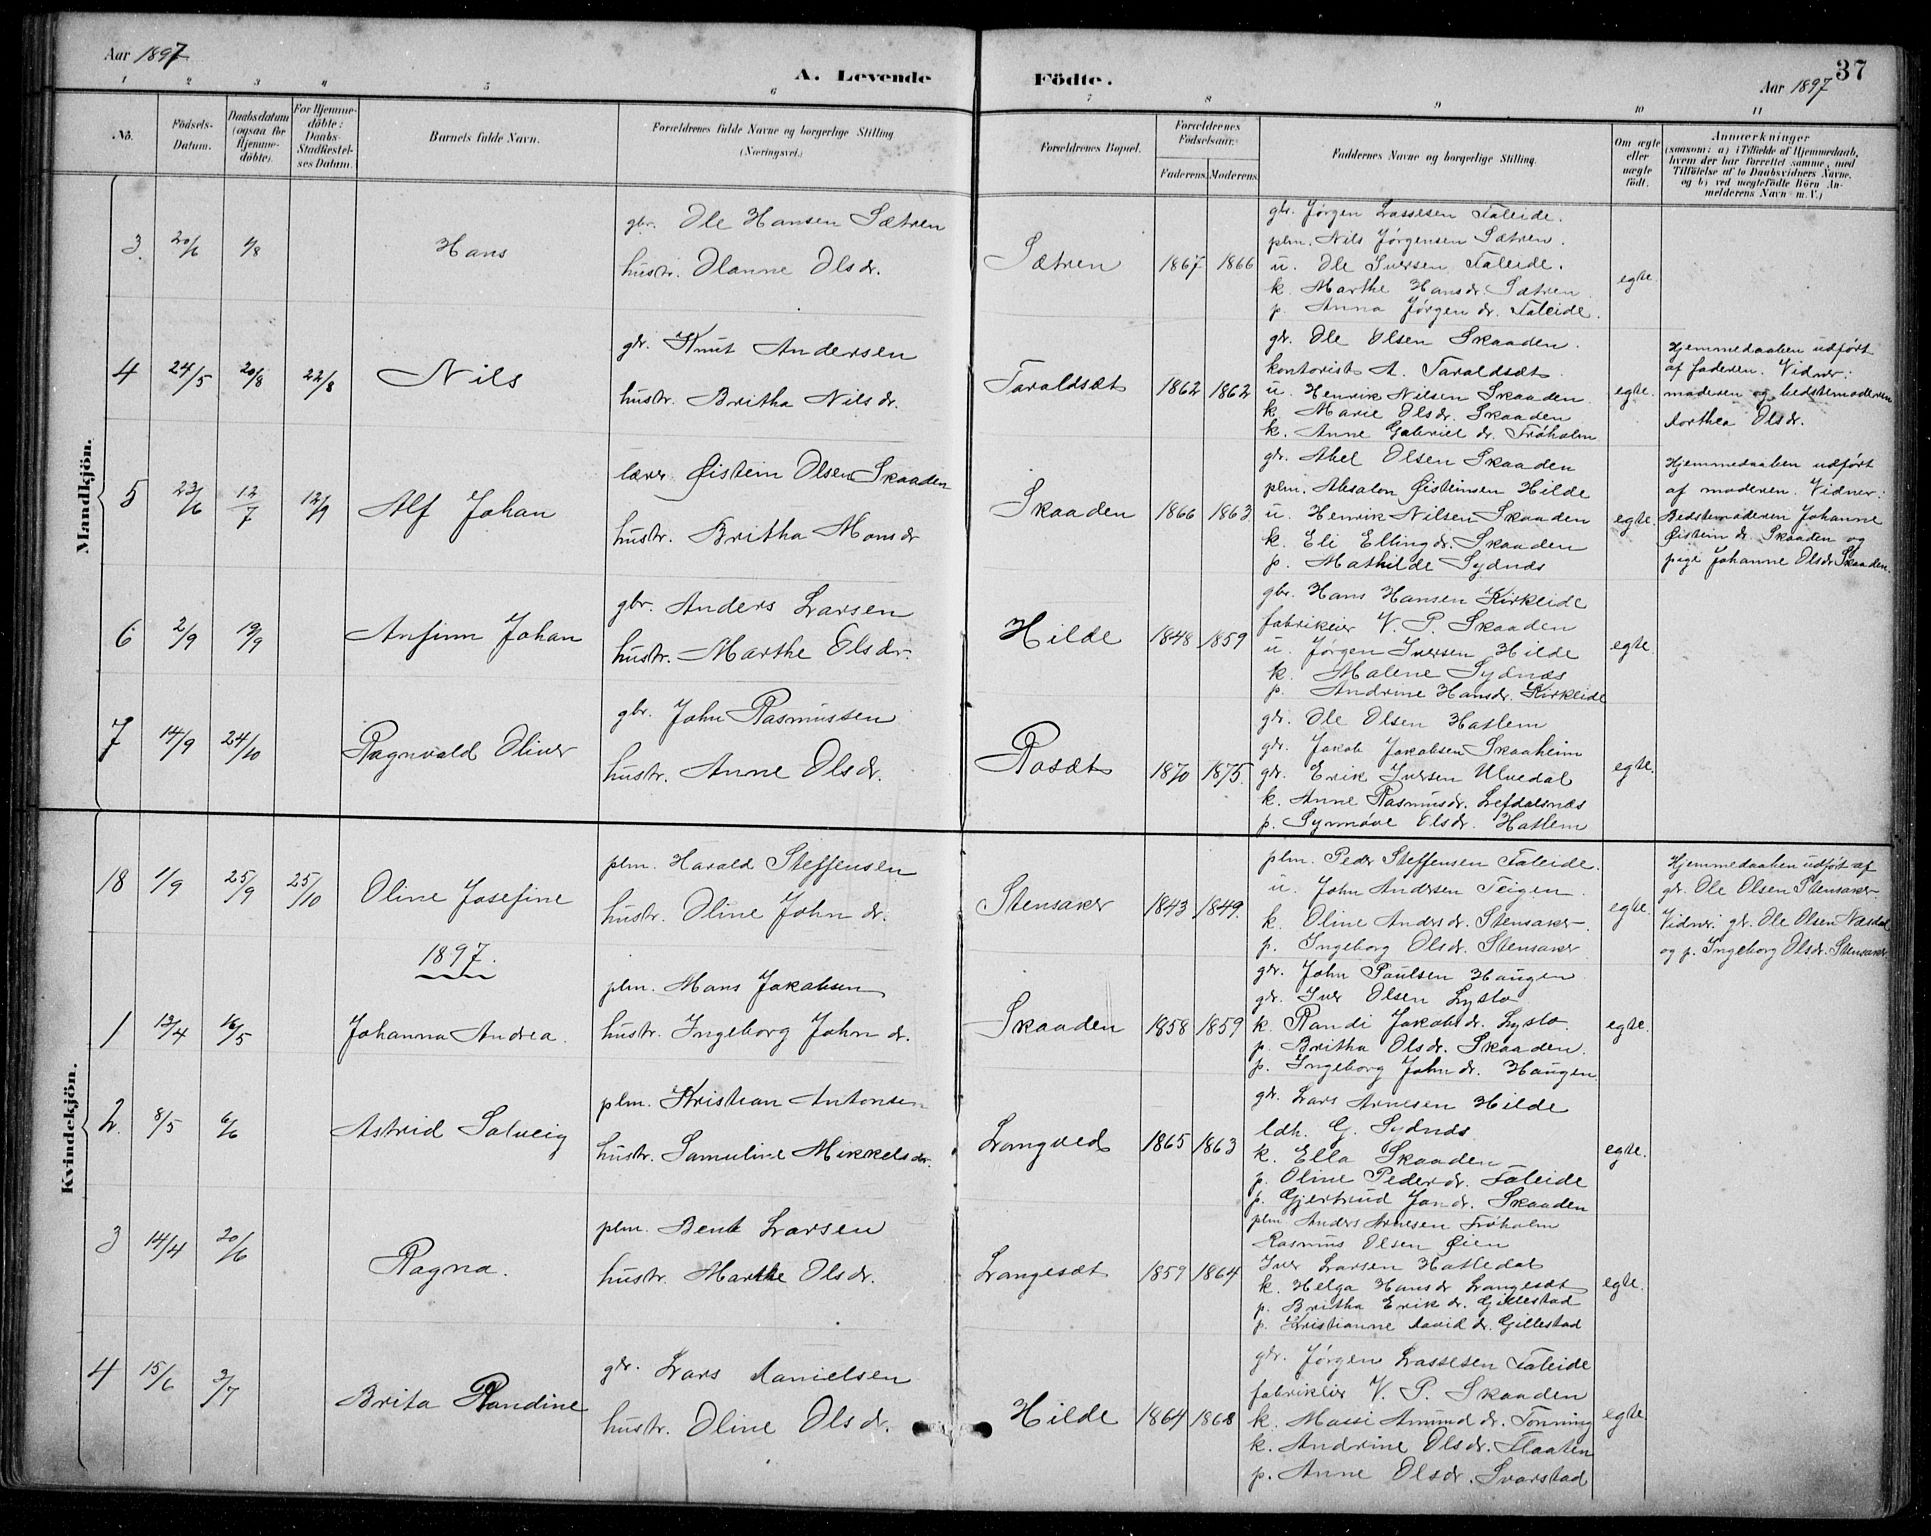 Aar 1897
A. Levende Födte.
37
Aar 1897
1 2 3 4 5 6 7 8 9 10 11
No.
Födsels-Datum.
Daabsdatum (ogsaa for Hjemme-döbte).
For Hjemme-döbte: Daabs-Stadfæstel-ses Datum.
Barnets fulde Navn.
Forældrenes fulde Navne og borgerlige Stilling (Næringsvei.)
Forældrenes Bopæl.
Forældrenes Födselsaar.
Faderens. Moderens.
Faddernes Navne og borgerlige Stilling.
Om ægte eller uægte födt.
Anmærkninger
(saasom: a) i Tilfælde af Hjemmedaab,
hvem der har forrettet samme, med
Tilföielse af to Daabsvidners Navne,
og b) ved uægtefödte Börn An-
melderens Navn m. V.)
Mandkjön.
3. 20/6 1/8
Hans
gbr. Ole Hansen Sætren
hustr. Olanne Olsdr.
Sætren
1867 1866
gbr. Jørgen Lassesen Faleide.
plm. Nils Jørgensen Sætren.
u. Ole Iversen Faleide.
k. Marthe Hansdr. Sætren
p. Anna Jørgen dr. Faleide.
egte.
4 24/5 20/8 22/8
Nils
gbr. Knut Andersen
hustr. Britha Nilsdr.
Taraldsæt
1862 1862
gbr. Ole Olsen Skaaden.
kontorist A. Taraldsæt.
u. Henrik Nilsen Skaaden.
k. Marie Olsdr. Skaaden
k. Anne Gabriel dr. Frøholm
egte.
Hjemmedaaben udført
af faderen. Vidner:
moderen og bedstemoderen
Dorthea Olsdr.
5 23/6 12/7 12/9
Alf Johan
lærer. Øistein Olsen Skaaden
hustr. Britha Monsdr
Skaaden
1866 1863
gbr. Abel Olsen Skaaden
plm. Absalon Øisteinsen Hilde
u. Henrik Nilsen Skaaden
k. Eli Ellingdr. Skaaden
p. Mathilde Sydnæs
egte.
Hjemmedaaben udført
af moderen. Vidner:
Bedstemoderen Johanne
Øistein dr. Skaaden og
pige Johanne Olsdr. Skaaden.
6 2/9 19/9
Anfinn Johan
gbr. Anders Larsen
hustr. Marthe Olsdr.
Hilde
1848 1859
gbr. Hans Hansen Kirkeide
fabrikeier V. P. Skaaden
u. Jørgen Iversen Hilde
k. Malene Sydnæs
p. Andrine Hansdr. Kirkeide
egte.
7 14/9 24/10
Ragnvald Oliver
gbr. John Rasmussen
hustr. Anne Olsdr.
Rosæt
1870 1875.
gbr. Ole Olsen Hatlem
gbr. Jakob Jakobsen Skaaheim
gbr. Erik Iversen Ulvedal
k. Anne Rasmusdr. Lefdalsnæs
p. Synnøve Olsdr. Hatlem
egte.
Kvindekjön.
18 1/9 25/9 25/10
Oline Josefine
plm. Harald Steffensen
hustr. Oline John dr.
Stensaker
1843 1849.
plm. Peder Steffensen Faleide.
u. John Andersen Teigen.
k. Oline Anders dr. Stensaker.
p. Ingeborg Olsdr. Stensaker
egte.
Hjemmedaaben udført af
gbr. Ole Olsen Stensaker
Vidner: gr. Ole Olsen
og p. Ingeborg Olsdr. Stensaker
1897.
1 13/4 16/5
Johanna Andrea.
plm. Mons Jakobsen
hustr. Ingeborg John dr.
Skaaden
1858 1859
gbr. John Paulsen Haugen
gbr. Iver Olsen Lyslo
k. Randi Jakobdr. Lyslo.
p. Britha Olsdr. Skaaden.
p. Ingeborg John dr. Haugen
egte.
2. 8/5 6/6
Astrid Solveig
plm. Kristian Antonsen
hustr. Samuline Mikkelsdr.
Langved
1865 1863
gbr. Lars Arnesen Hilde
ldh. G. Sydnæs
k. Ella Skaaden
p. Oline Pederdr. Faleide
p. Gjertrud Jondr. Skaaden
egte.
3 14/4 20/6
Ragna.
plm. Bent Larsen
hustr. Marthe Olsdr.
Langesæt
1859 1864
plm. Anders Arnesen Frøholm
Rasmus Olsen Øien
Iver Larsen Hatledal
k. Helga Hansdr Langesæt
p. Britha Erik dr. Gillestad
p. Kristianne David dr. Gillestad
egte.
4 15/6 3/7
Brita Randine
gbr. Lars Danielsen
hustr. Oline Olsdr.
Hilde
1864 1868
gbr. Jørgen Lassesen Faleide
fabrikeier V. P. Skaaden
k. Massi Amund dr. Tonning
k. Andrine Olsdr. Flaaten
p. Anne Olsdr. Svarstad
egte.